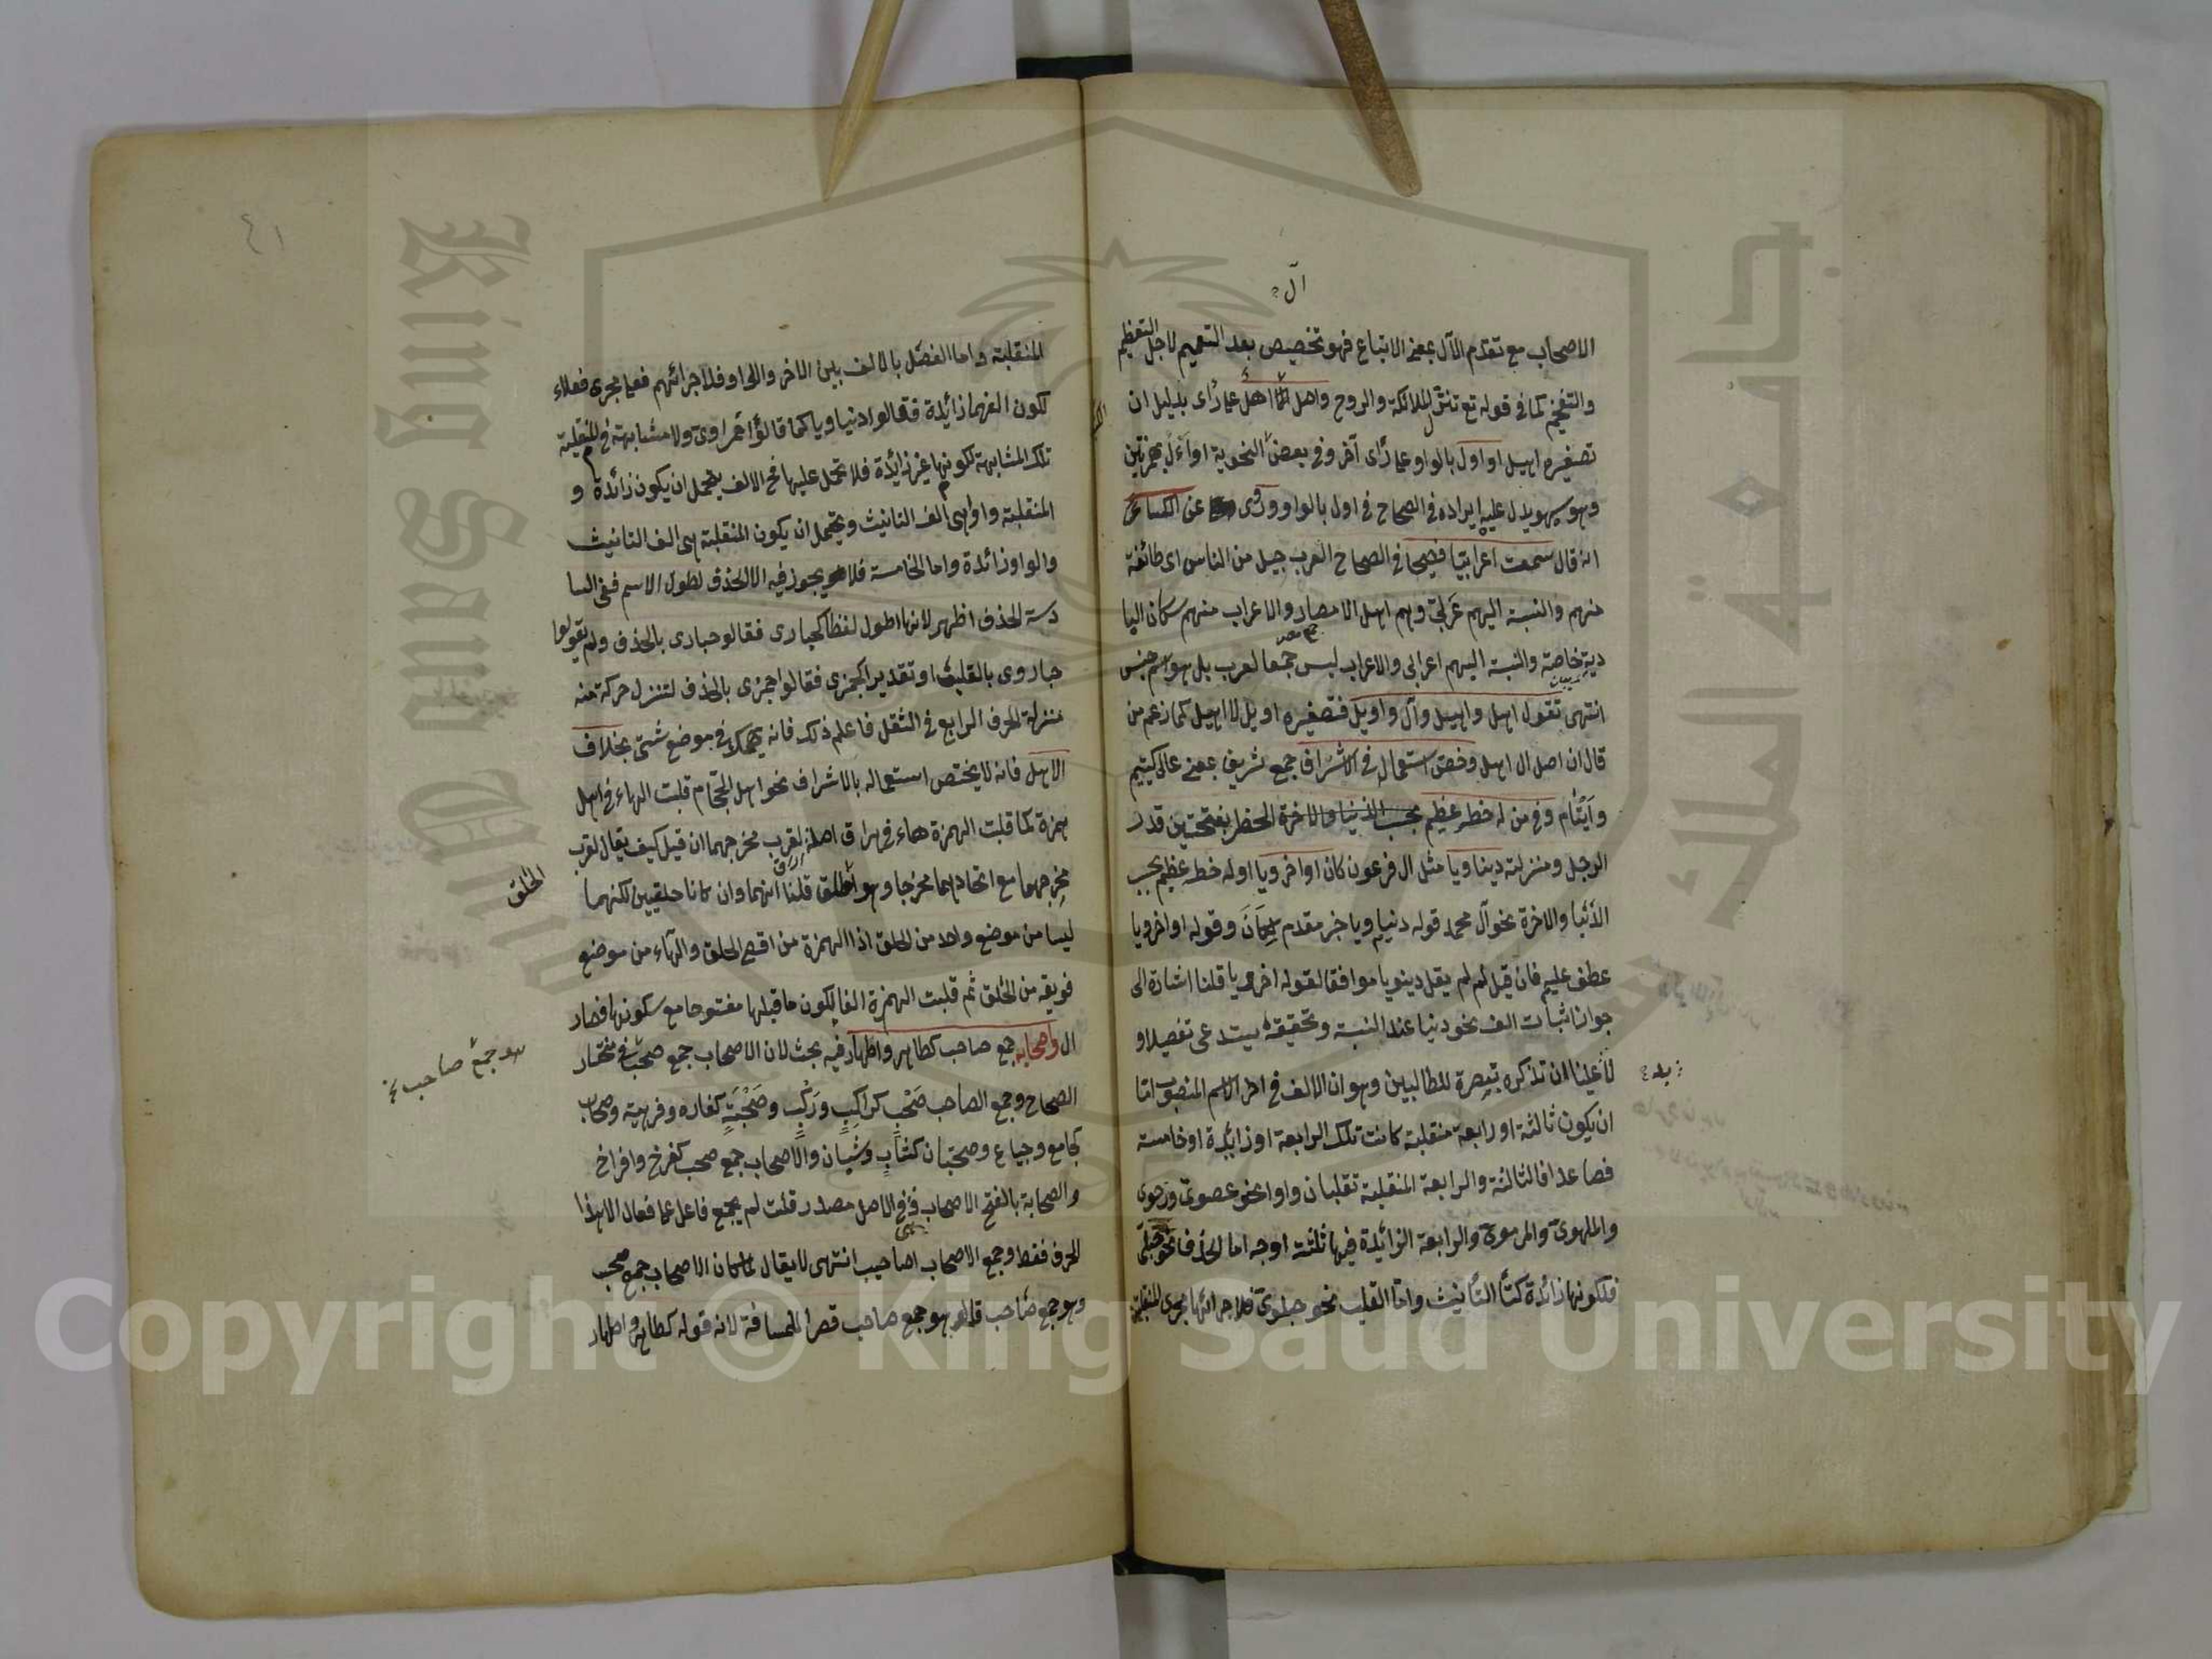 ال
الاصحاب مع تقدم الآل بمعنى الاتباع فهو تخصيص بعد التعميم لاجل التعظيم
والتفخيم كما في قوله تع تنزل الملائكة والروح واهل اهل على رأى بدليل ان
تصغيره اهيل او اول بالواو على رأى آخر وفي بعض النحوية او أأل بهمزتين
وهو سهو يدل عليه ايراده في الصحاح في اول بالواو وروى عن الكسائى
انه قال سمعت اعرابيا فصيحا في الصحاح العرب جيل من الناس اى طائفة
منهم والنسبة اليهم عربي وهم اهل الامصار والاعراب منهم سكان البا
دية خاصة والنسبة اليهم اعرابي والاعراب ليس جمعا لعرب بل هو اسم جنس
انتهى يقول اهل واهيل وآل واويل فتصغيره اويل لا اهيل كما زعم من
قال ان اصل ال اهل وخص استعماله في الاشراف جمع شريف بمعنى عالى كيتيم
وايتام وفي من له خطر عظيم بحسب الدنيا والاخرة الخطر بفتحتين قدر
الرجل ومنزلته دنياويا مثل ال فرعون كان او اخرويا اوله خطر عظيم بحسب
الدنيا والاخرة نحو آل محمد قوله دنياويا خبر مقدم لكان وقوله او اخرويا
عطف عليه فان قيل لم لم يقل دينويا موافقا لقوله اخرويا قلنا اشارة الى
جواز اثبات الف نحو دنيا عند النسبة وتحقيقه يستدعى تفصيلا و
لا علينا ان نذكره تبصرة للطالبين وهو ان الالف في اخر الاسم المنصوب اما
ان يكون ثالثة او رابعة منقلبة كانت تلك الرابعة او زائدة او خامسة
فصاعدا فالثالثة والرابعة المنقلبة تقلبان واوا نحو عصوى ورحوى
والملهوى والمرموى والرابعة الزائدة فيها ثلثة اوجه اما الحذف فنحو حبلى
فلكونها زائدة كتاء التأنيث واما القلب نحو حبلوى فلاجرائها مجرى المنقلبة
٤١
المنقلبة واما الفصل بالالف بين الاخر والواو فلاجرائهم فعلى مجرى فعلاء
لكون الفهما زائدة فقالوا دنياويا كما قالوا حمراوى ولا مشابهة في المنقلبة
تلك المشابهة لكونها غير زائدة فلا تحمل عليها فح الالف يحتمل ان يكون زائدة و
المنقلبة واوا هى الف التانيث ويحتمل ان يكون المنقلبة هى الف التانيث
والواو زائدة واما الخامسة فلا يجوز فيه الا الحذف لطول الاسم ففى السا
دسة الحذف اظهر لانها اطول لفظا كحبارى فقالو حبارى بالحذف ولم يقولوا
حباروى بالقلب او تقديرا كجمزى فقالوا جمزى بالحذف لتنزل حركة منه
منزلة الحرف الرابع في الثقل فاعلم ذلك فانه يهمك في موضع شتى بخلاف
الاهل فانه لا يختص استعماله بالاشراف نحو اهل الحجام قلبت الهاء في اهل
همزة كما قلبت الهمزة هاء في هراق اصله اراق لقرب مخرجهما ان قيل كيف يقال لقرب
مخرجهما مع اتحادهما مخرجا وهو الحلق قلنا انهما وان كانا حلقيين لكنهما
الحلق
ليسا من موضع واحد من الحلق اذ الهمزة من اقصى الحلق والهاء من موضع
فويقه من الحلق ثم قلبت الهمزة الفا لكون ما قبلها مفتوحا مع سكونها فصار
ال واصحابه جمع صاحب كطاهر واطهار فيه بحث لان الاصحاب جمع صحب في مختار
وهو جمع صاحب نخ
الصحاح وجمع الصاحب صحب كراكب وركب وصحبة كفاره وفرهة وصحاب
كجامع وجياع وصحبان كشاب وشبان والاصحاب جمع صحب كفرخ وافراخ
والصحابة بالفتح الاصحاب وفي الاصل مصدر قلت لم يجمع فاعل على فعال الا هذا
الحرف فقط وجمع الاصحاب اصاحيب انتهى لا يقال لما كان الاصحاب جمع صحب
وهو جمع صاحب قال هو جمع صاحب قصرا للمسافة لانه قوله كطاهر واطهار
Copyright © King Saud University
King Saud University
جامعة الملك سعود
1957